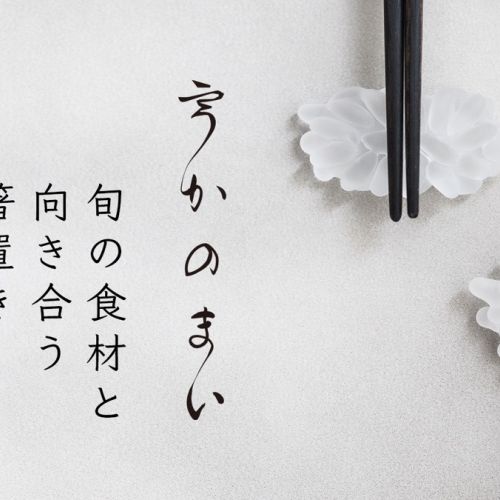 宇かのまい
旬の食材と
向き合う
箸置き